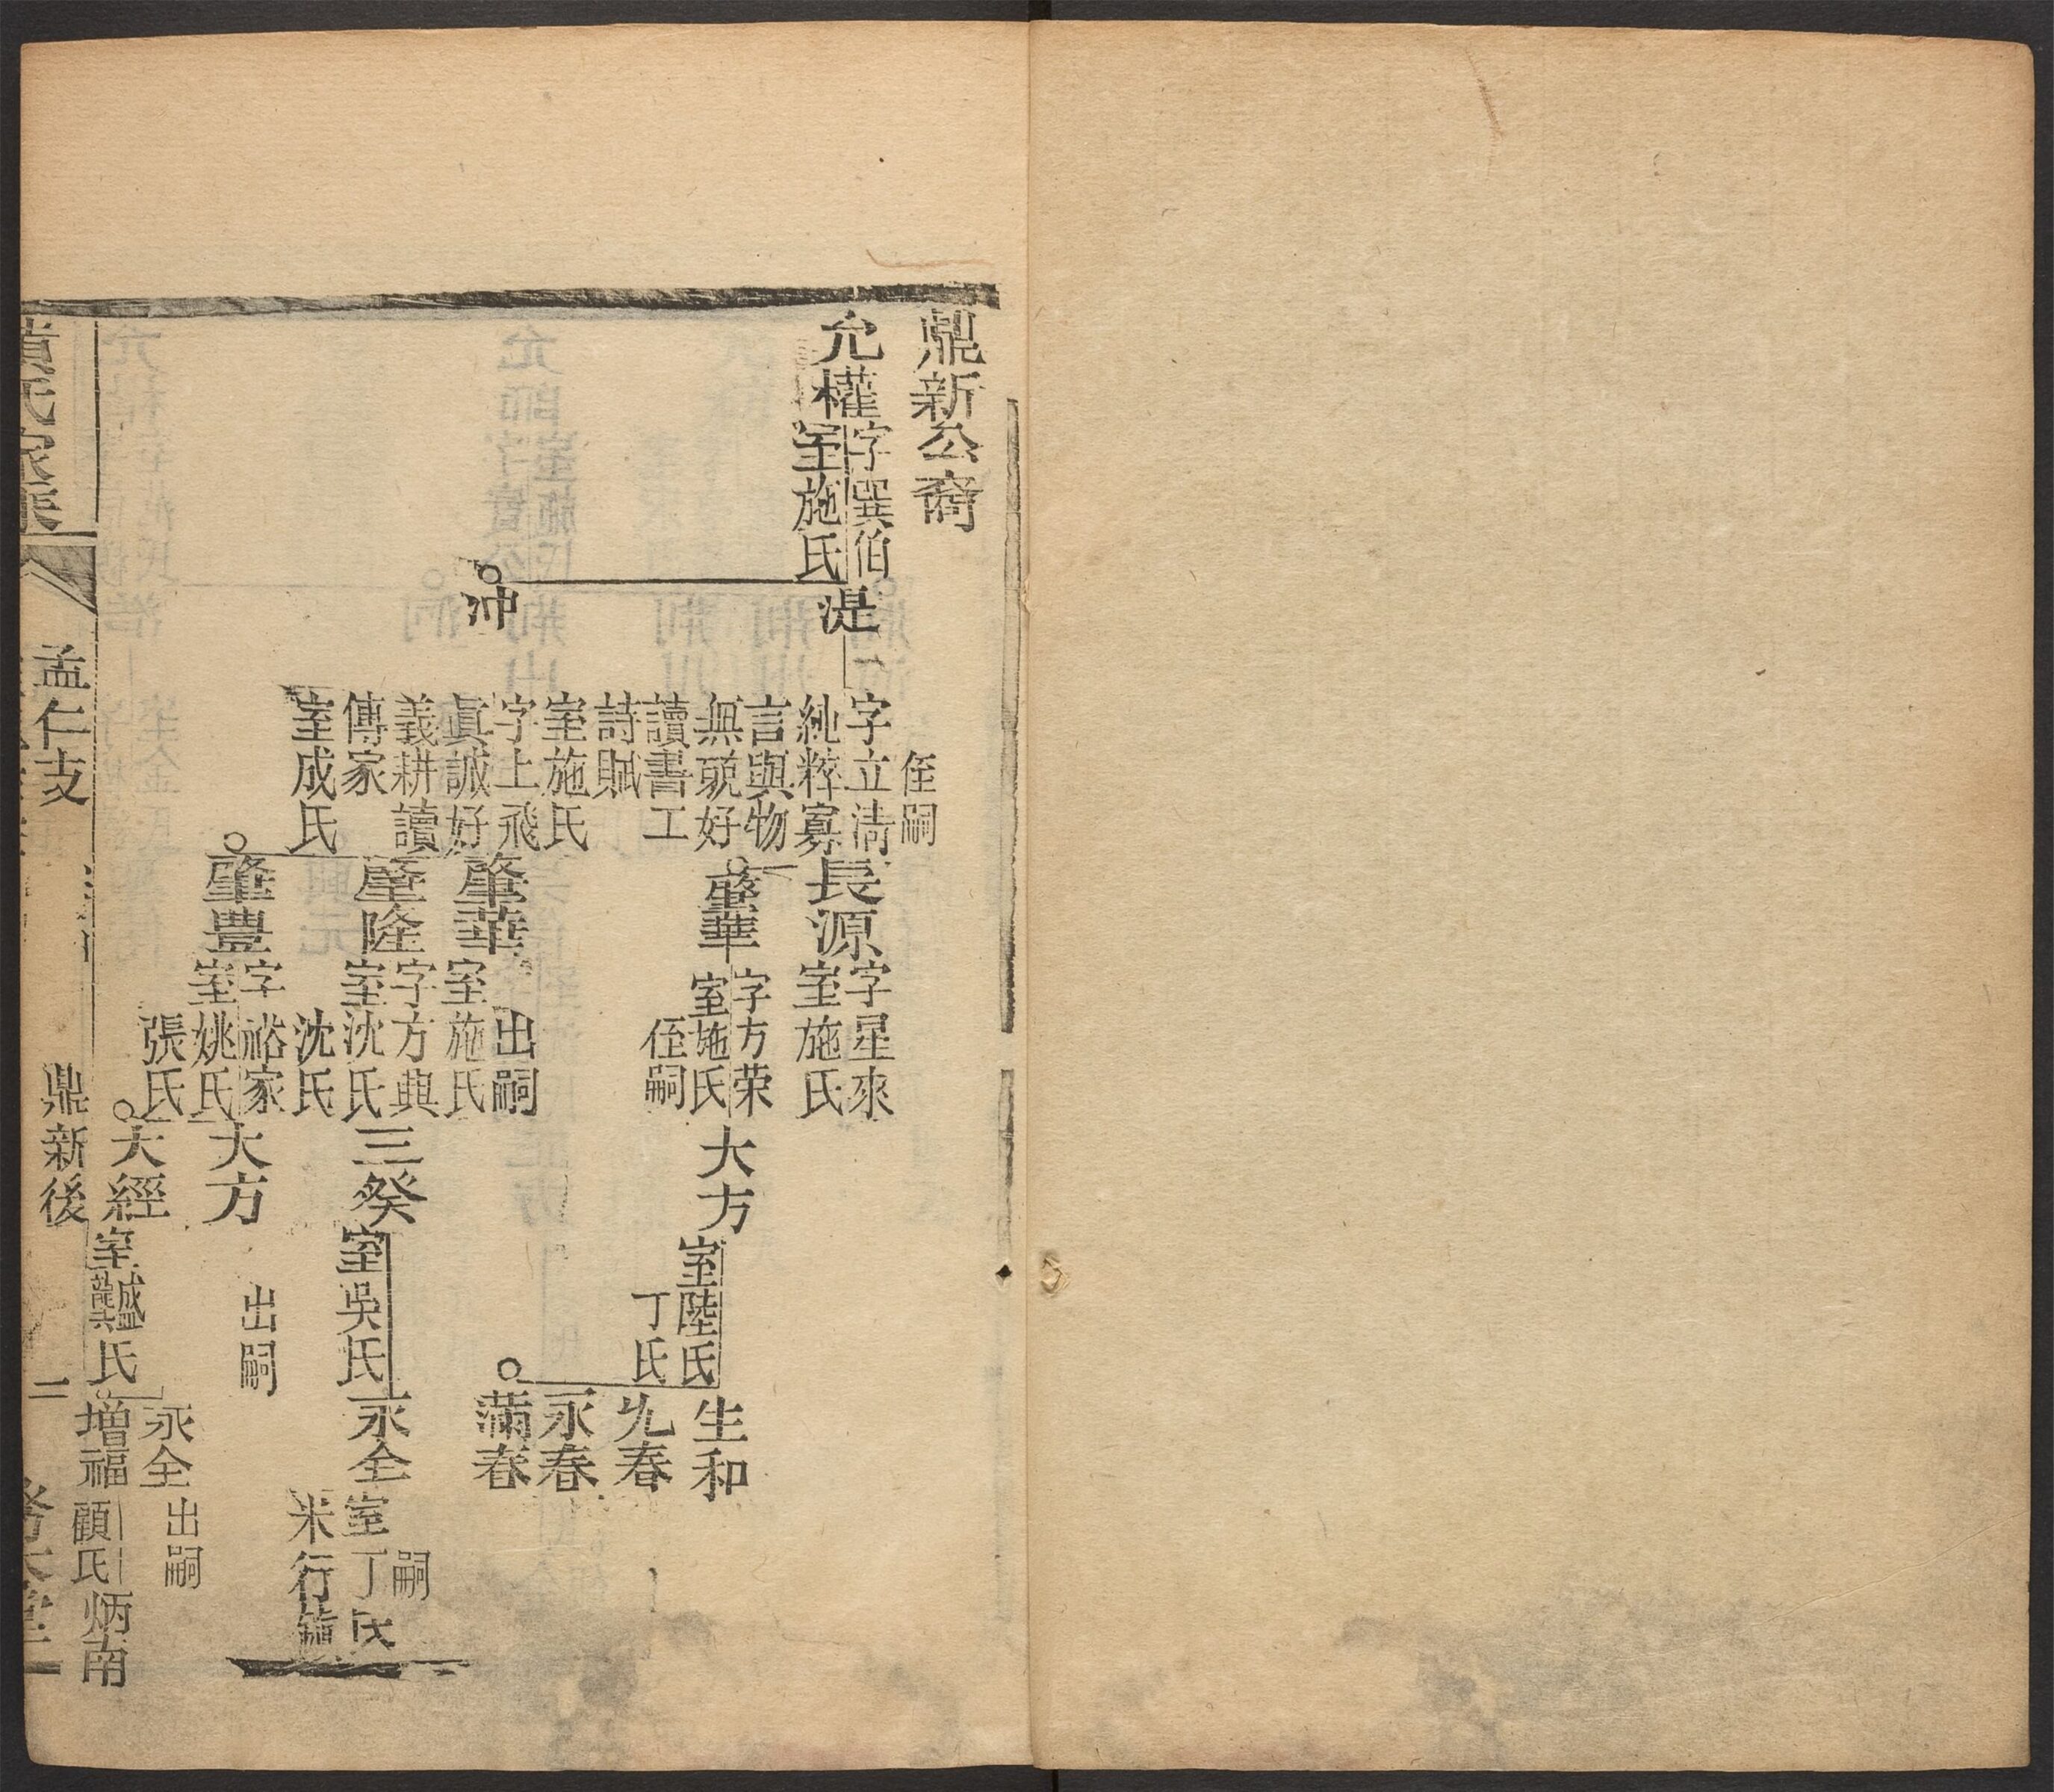 鼎新公裔
允權
字巽伯
室施氏
湜
侄嗣
字立清
純粹寡
言與物
無競好
讀書工
詩賦
室施氏
長源
字星來
室施氏
肇華
字方荣
室施氏
侄嗣
大方
室陸氏
丁氏
生和
允春
永春
滿春
沖
字上飛
眞誠好
義耕讀
傳家
室成氏
肇華
出嗣
室施氏
肇隆
字方典
室沈氏
沈氏
三癸
室吳氏
永全
嗣
室丁氏
米行鎮
肇豊
字裕家
室姚氏
張氏
大方
出嗣
大經
室龔氏
永全
出嗣
增福
顧氏
炳南
黃氏家乘
孟仁支
鼎新後
二